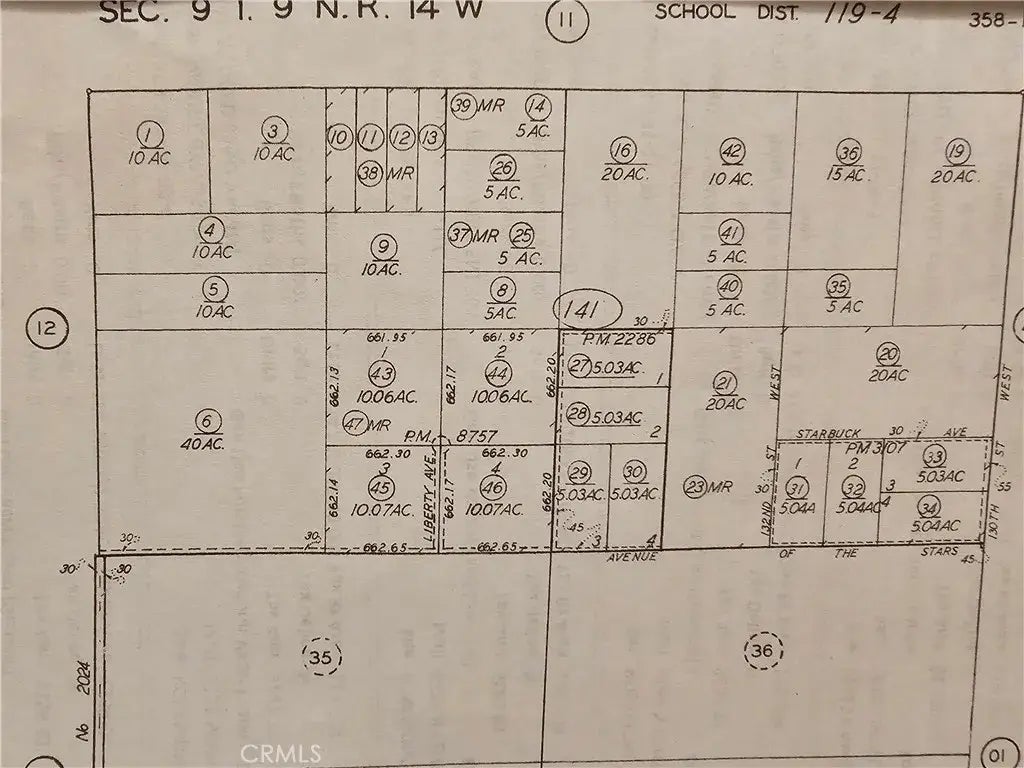 SEC. 9 T. 9 N. R. 14 W
11
SCHOOL DIST. 119-4
358-
1
10 AC
3
10 AC
10
11
12
13
38 MR
39 MR
14
5 AC.
26
5 AC.
16
20 AC.
42
10 AC.
36
15 AC.
19
20 AC.
4
10 AC
9
10 AC.
37 MR
25
5 AC.
41
5 AC.
5
10 AC
8
5 AC.
141
30
40
5 AC.
35
5 AC
12
661.95
1
43
10.06 AC.
662.13
661.95
2
44
10.06 AC.
662.17
662.20
P.M. 2286
27 5.03 AC.
1
28 5.03 AC.
2
21
20 AC
WEST
20
20 AC
WEST
6
40 AC.
47 MR
P.M. 8757
662.30
3
45
10.07 AC.
662.14
LIBERTY AVE.
662.30
4
46
10.07 AC.
662.17
662.20
29
5.03 AC.
30
5.03 AC.
45
3
4
23 MR
30
132ND ST
STARBUCK 30 AVE
PM 3107
1
31
5.04 A
2
32
5.04 AC
33
5.03 AC
3
4
34
5.04 AC
130TH ST
55
30
30
662.65
662.65
AVENUE OF THE STARS
45
30
30
35
36
No 2024
01
CRMLS